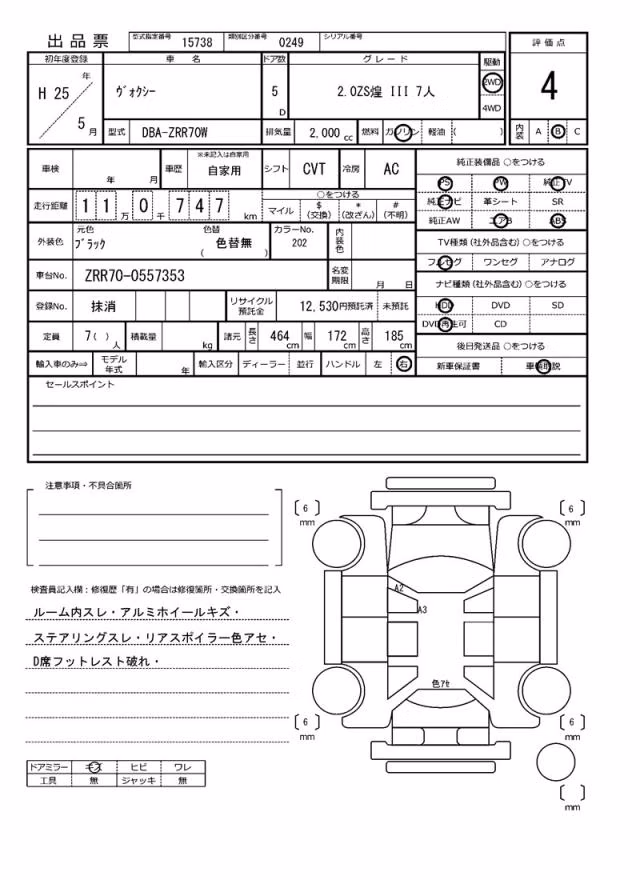 出品票 型式指定番号 15738 類別区分番号 0249 シリアル番号
評価点
4
内装 A B C
初年度登録 車 名 ドア数 グレード 駆動
H 25 年 5 月 ヴォクシー 5 D 2.0ZS煌 III 7人 2WD
4WD
型式 DBA-ZRR70W 排気量 2,000 cc 燃料 ガソリン 軽油 ( )
車検 年 月 車歴 ※未記入は自家用 自家用 シフト CVT 冷房 AC
走行距離 1 1 万 0 千 7 4 7 km ○をつける
マイル $ (交換) * (改ざん) # (不明)
外装色 元色 ブラック 色替 ( 色替無 ) カラーNo. 202 内装色
車台No. ZRR70-0557353 名変期限 月 日
登録No. 抹消 リサイクル預託金 12,530円預託済 未預託
定員 7( ) 人 積載量 kg 諸元 長さ 464 cm 幅 172 cm 高さ 185 cm
輸入車のみ⇒ モデル年式 年 輸入区分 ディーラー 並行 ハンドル 左 右
純正装備品 ○をつける
PS PW 純正TV
純正ナビ 革シート SR
純正AW エアB ABS
TV種類(社外品含む)○をつける
フルセグ ワンセグ アナログ
ナビ種類(社外品含む)○をつける
HDD DVD SD
DVD再生可 CD
後日発送品 ○をつける
新車保証書 車輌取説
セールスポイント
注意事項・不具合箇所
検査員記入欄：修復歴「有」の場合は修復箇所・交換箇所を記入
ルーム内スレ・アルミホイールキズ・
ステアリングスレ・リアスポイラー色アセ・
D席フットレスト破れ・
ドアミラー キズ ヒビ ワレ
工具 無 ジャッキ 無
6 mm
6 mm
A2
A3
色アセ
6 mm
6 mm
mm